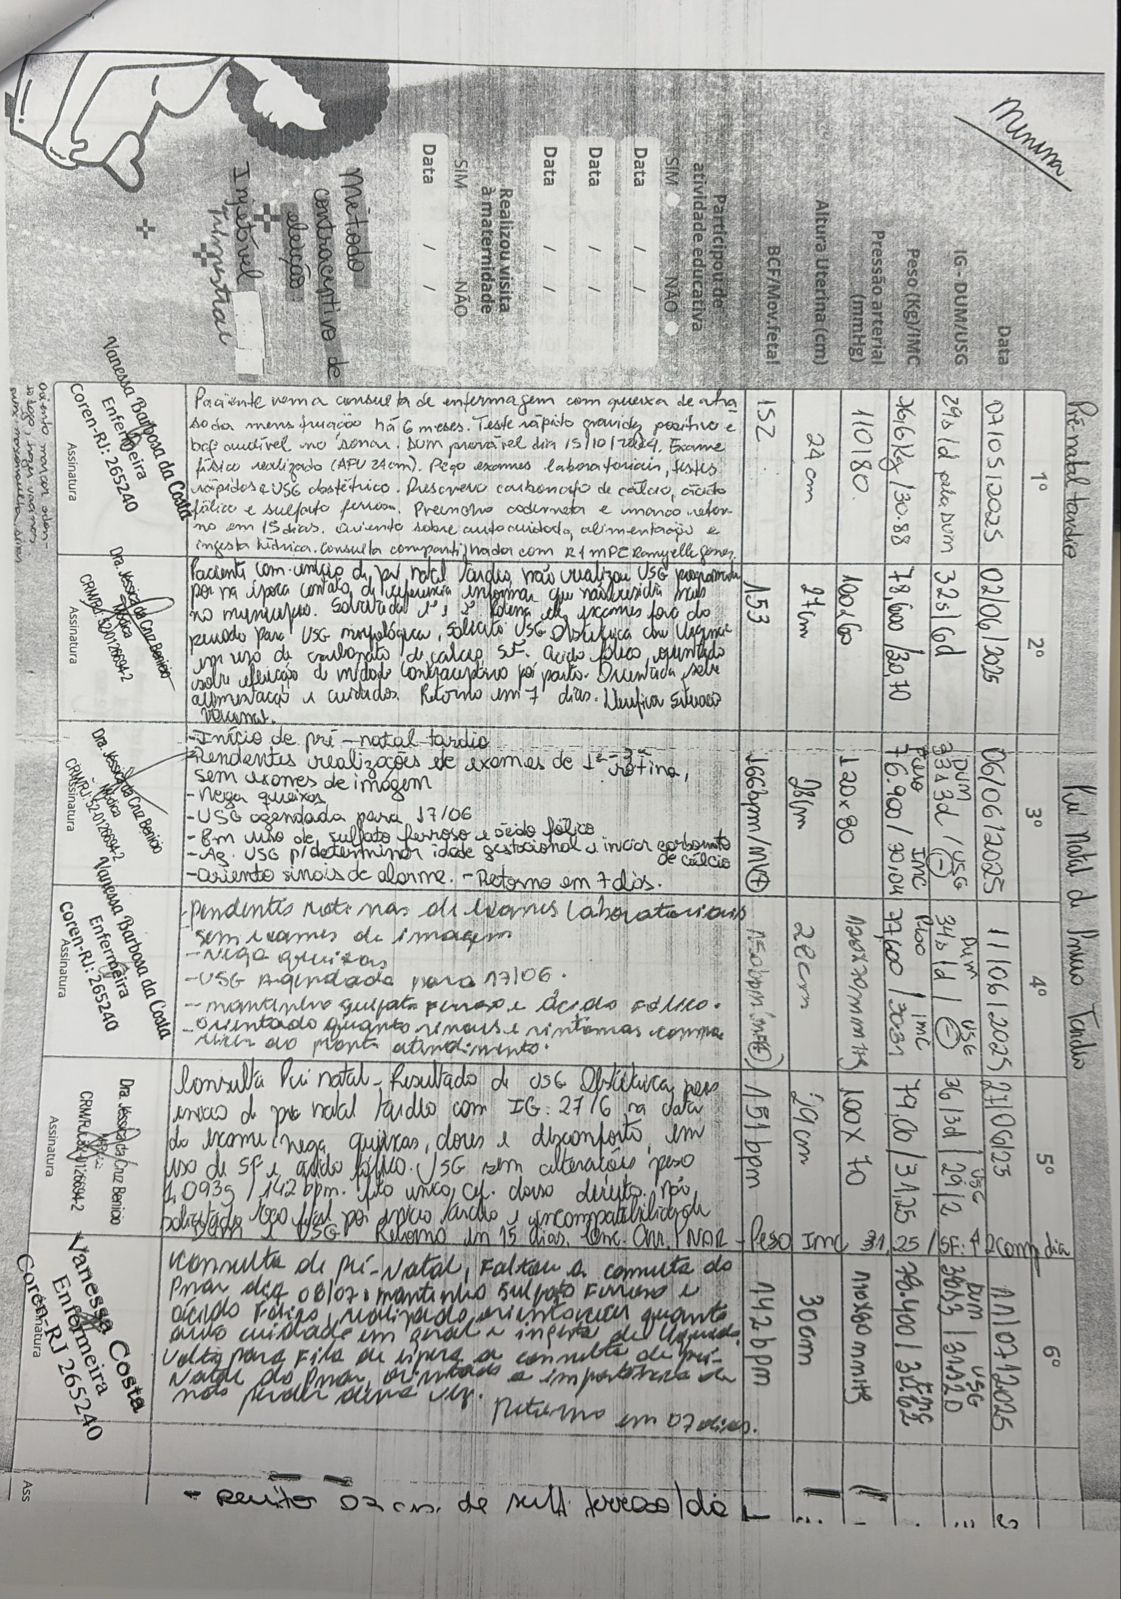 Menina
Pré natal tardio
Pré natal d Início Tardio
1º
2º
3º
4º
5º
6º
Data
07/05/2025
02/06/2025
06/06/2025
11/06/2025
27/06/25
11/07/2025
IG - DUM/USG
29s 1d pela DUM
32s/6d
DUM USG
33s3d / (-)
DUM USG
34s 1d / (-)
USG
36/3d / 29/2
DUM USG
Peso (Kg)/IMC
76,6 Kg / 30.88
78,600 / 30,70
Peso IMC
76.900 / 30.04
Peso IMC
77,600 / 30.31
79,00 / 31,25
IMC
78.400 /
Pressão arterial
(mmHg)
110/80
100x60
120x80
100 x 70
110x80 mmHg
Altura Uterina (cm)
24 cm
27cm
28cm
28cm
29cm
30cm
BCF/Mov.fetal
152
153
166bpm/MV+
150bpm
151 bpm
142 bpm
Participou de
atividade educativa
SIM NÃO
Data / /
Data / /
Data / /
Realizou visita
à maternidade
SIM NÃO
Data / /
Método
contraceptivo de
eleição
Injetável
trimestral
Paciente vem a consulta de enfermagem com queixa de atra
so da menstruação há 6 meses. Teste rápido gravidez positivo e
bcf audível no sonar. DUM provável dia 15/10/2024. Exame
físico realizado (AFU 24cm). Peço exames laboratoriais, testes
rápidos e USG obstétrico. Prescrevo carbonato de cálcio, ácido
fólico e sulfato ferroso. Preencho caderneta e marco retor-
no em 15 dias. Oriento sobre autocuidado, alimentação e
ingesta hídrica. Consulta compartilhada com R1 MFC
Vanessa Barbosa da Costa
Enfermeira
Coren-RJ: 265240
Assinatura
Paciente com início de pré natal tardio, não realizou USG programada
por na época contato de referência informar que não residia mais
no município. Solicitada 1ª, 2ª Rotina de exames fora do
período para USG morfológica, solicito USG Obstétrica com Urgência
em uso de carbonato de cálcio, SF. Acido fólico, orientada
sobre eleição de método contraceptivo pós parto. Orientada sobre
alimentação e cuidados. Retorno em 7 dias. Verificar situação
vacinal.
Dra. Jessica da Cruz Benicio
Médica
CRM/RJ: 52-0126694-2
Assinatura
- Início de pré-natal tardio
- Pendentes realizações de exames de 1ª rotina,
sem exames de imagem
- Nega queixas
- USG agendada para 17/06
- Em uso de sulfato ferroso e ácido fólico
- Ag. USG p/determinar idade gestacional e iniciar carbonato
de cálcio
- Oriento sinais de alarme. - Retorno em 7 dias.
Dra. Jessica da Cruz Benicio
Médica
CRM/RJ: 52-0126694-2
- Pendentes rotinas de exames laboratoriais
- sem exames de imagem
- Nega queixas
- USG Agendada para 17/06.
- mantenho sulfato ferroso e Ácido Fólico.
- orientado quanto sinais e sintomas compa
recer ao pronto atendimento.
Vanessa Barbosa da Costa
Enfermeira
Coren-RJ: 265240
Assinatura
Consulta Pré natal - Resultado de USG Obstétrica, pois
início d pré natal tardio com IG: 27/6 na data
do exame, nega queixas, dores e desconforto, em
uso de SF e acido fólico. USG sem alterações peso
1.093g / 142 bpm. feto único, cef. dorso direito. não
solicitado por início tardio e incompatibilidade
DUM e USG Retorno em 15 dias. PNAR - Peso IMC 31,25 / SF: 2comp dia
Dra. Jessica da Cruz Benicio
CRM/RJ: 52-0126694-2
Assinatura
Consulta de Pré-Natal, Faltou a consulta do
Pnar dia 08/07. mantenho sulfato Ferroso e
ácido Fólico, realizado orientações quanto
auto cuidado em geral e ingesta de líquidos.
Volta para Fila de espera a consulta de pré-
Natal do Pnar, orientada a importância de
não perder dessa vez.
Retorno em 07 dias.
Vanessa Costa
Enfermeira
Coren-RJ 265240
Assinatura
02 de sulf. ferroso/dia
Ass